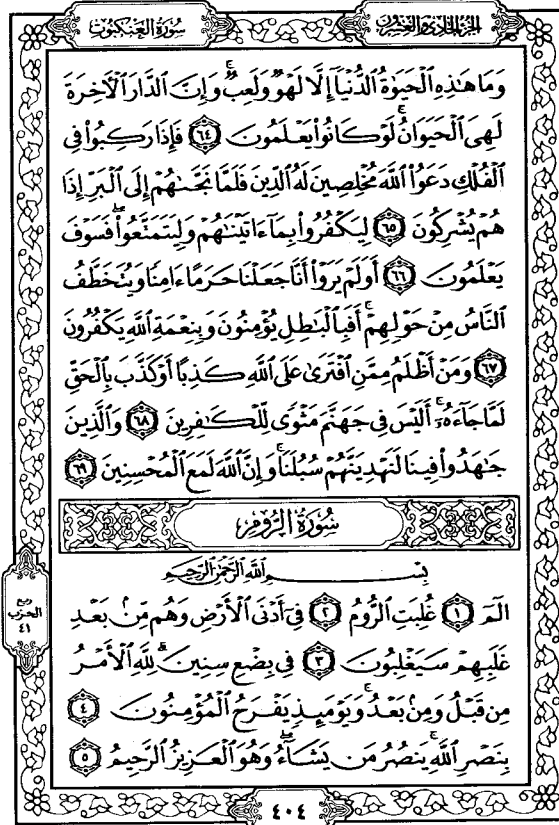 سُورَةُ العَنكَبُوتِ
الجُزءُ الحَادِي وَالعِشْرُونَ
وَمَا هَٰذِهِ ٱلْحَيَوٰةُ ٱلدُّنْيَآ إِلَّا لَهْوٌ وَلَعِبٌ ۚ وَإِنَّ ٱلدَّارَ ٱلْءَاخِرَةَ
لَهِىَ ٱلْحَيَوَانُ ۚ لَوْ كَانُوا۟ يَعْلَمُونَ ٦٤ فَإِذَا رَكِبُوا۟ فِى
ٱلْفُلْكِ دَعَوُا۟ ٱللَّهَ مُخْلِصِينَ لَهُ ٱلدِّينَ فَلَمَّا نَجَّىٰهُمْ إِلَى ٱلْبَرِّ إِذَا
هُمْ يُشْرِكُونَ ٦٥ لِيَكْفُرُوا۟ بِمَآ ءَاتَيْنَٰهُمْ وَلِيَتَمَتَّعُوا۟ ۖ فَسَوْفَ
يَعْلَمُونَ ٦٦ أَوَلَمْ يَرَوْا۟ أَنَّا جَعَلْنَا حَرَمًا ءَامِنًا وَيُتَخَطَّفُ
ٱلنَّاسُ مِنْ حَوْلِهِمْ ۚ أَفَبِٱلْبَٰطِلِ يُؤْمِنُونَ وَبِنِعْمَةِ ٱللَّهِ يَكْفُرُونَ
٦٧ وَمَنْ أَظْلَمُ مِمَّنِ ٱفْتَرَىٰ عَلَى ٱللَّهِ كَذِبًا أَوْ كَذَّبَ بِٱلْحَقِّ
لَمَّا جَآءَهُۥٓ ۚ أَلَيْسَ فِى جَهَنَّمَ مَثْوًى لِّلْكَٰفِرِينَ ٦٨ وَٱلَّذِينَ
جَٰهَدُوا۟ فِينَا لَنَهْدِيَنَّهُمْ سُبُلَنَا ۚ وَإِنَّ ٱللَّهَ لَمَعَ ٱلْمُحْسِنِينَ ٦٩
سُورَةُ الرُّومِ
بِسْمِ ٱللَّهِ ٱلرَّحْمَٰنِ ٱلرَّحِيمِ
الٓمٓ ١ غُلِبَتِ ٱلرُّومُ ٢ فِىٓ أَدْنَى ٱلْأَرْضِ وَهُم مِّنۢ بَعْدِ
غَلَبِهِمْ سَيَغْلِبُونَ ٣ فِى بِضْعِ سِنِينَ ۗ لِلَّهِ ٱلْأَمْرُ
مِن قَبْلُ وَمِنۢ بَعْدُ ۚ وَيَوْمَئِذٍ يَفْرَحُ ٱلْمُؤْمِنُونَ ٤
بِنَصْرِ ٱللَّهِ ۚ يَنصُرُ مَن يَشَآءُ ۖ وَهُوَ ٱلْعَزِيزُ ٱلرَّحِيمُ ٥
ربع
الحزب
٤١
٤٠٤